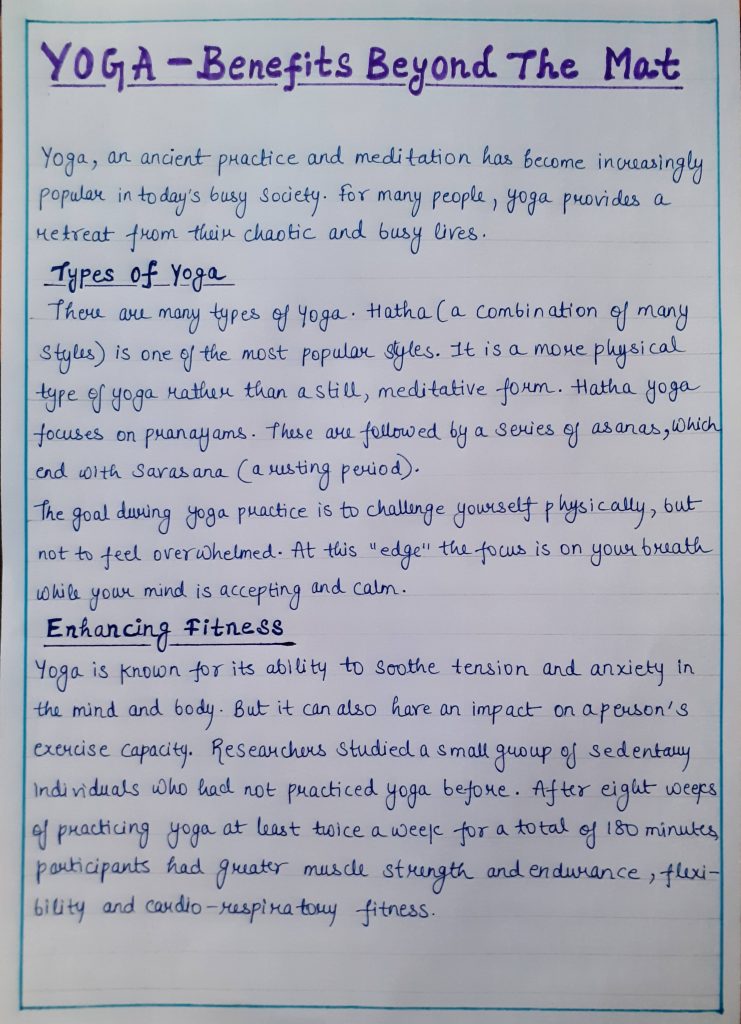 YOGA - Benefits Beyond The Mat
Yoga, an ancient practice and meditation has become increasingly
popular in today's busy society. For many people, yoga provides a
retreat from their chaotic and busy lives.
Types of Yoga
There are many types of Yoga. Hatha (a combination of many
styles) is one of the most popular styles. It is a more physical
type of yoga rather than a still, meditative form. Hatha yoga
focuses on pranayams. These are followed by a series of asanas, which
end with Savasana (a resting period).
The goal during yoga practice is to challenge yourself physically, but
not to feel overwhelmed. At this "edge" the focus is on your breath
while your mind is accepting and calm.
Enhancing Fitness
Yoga is known for its ability to soothe tension and anxiety in
the mind and body. But it can also have an impact on a person's
exercise capacity. Researchers studied a small group of sedentary
individuals who had not practiced yoga before. After eight weeks
of practicing yoga at least twice a week for a total of 180 minutes,
participants had greater muscle strength and endurance, flexi-
bility and cardio-respiratory fitness.